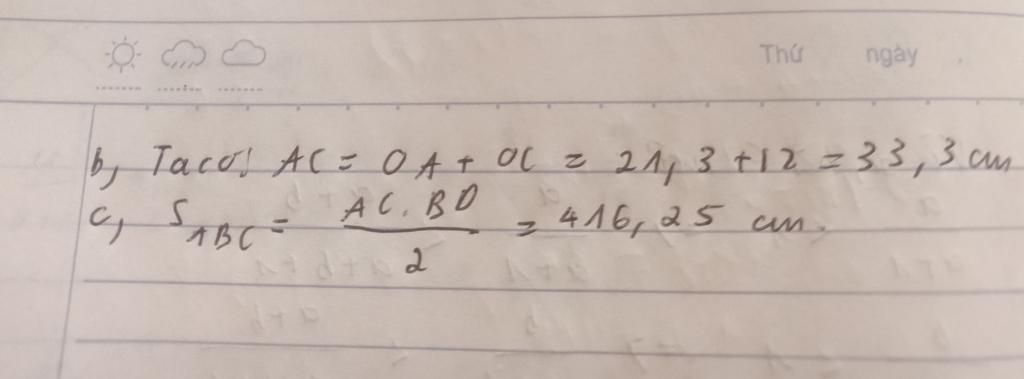 Thứ ngày .
b, Ta có: AC = OA + OC = 21,3 + 12 = 33,3 cm
c, S_ABC = AC.BD / 2 = 416,25 cm.